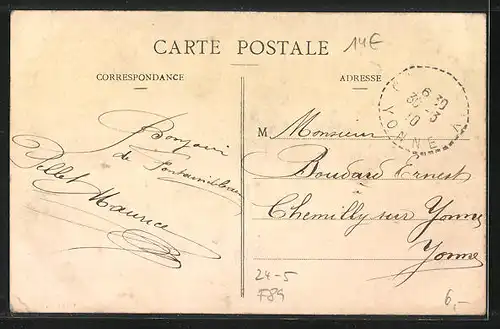 CARTE POSTALE
14E
CORRESPONDANCE
ADRESSE
6 30
30-3
10
YONNE
M Monsieur
Boudard Ernest
à
Chemilly sur Yonne
Yonne
Bonjour
de Fontainebleau
Maurice
24-5
F89
6,-